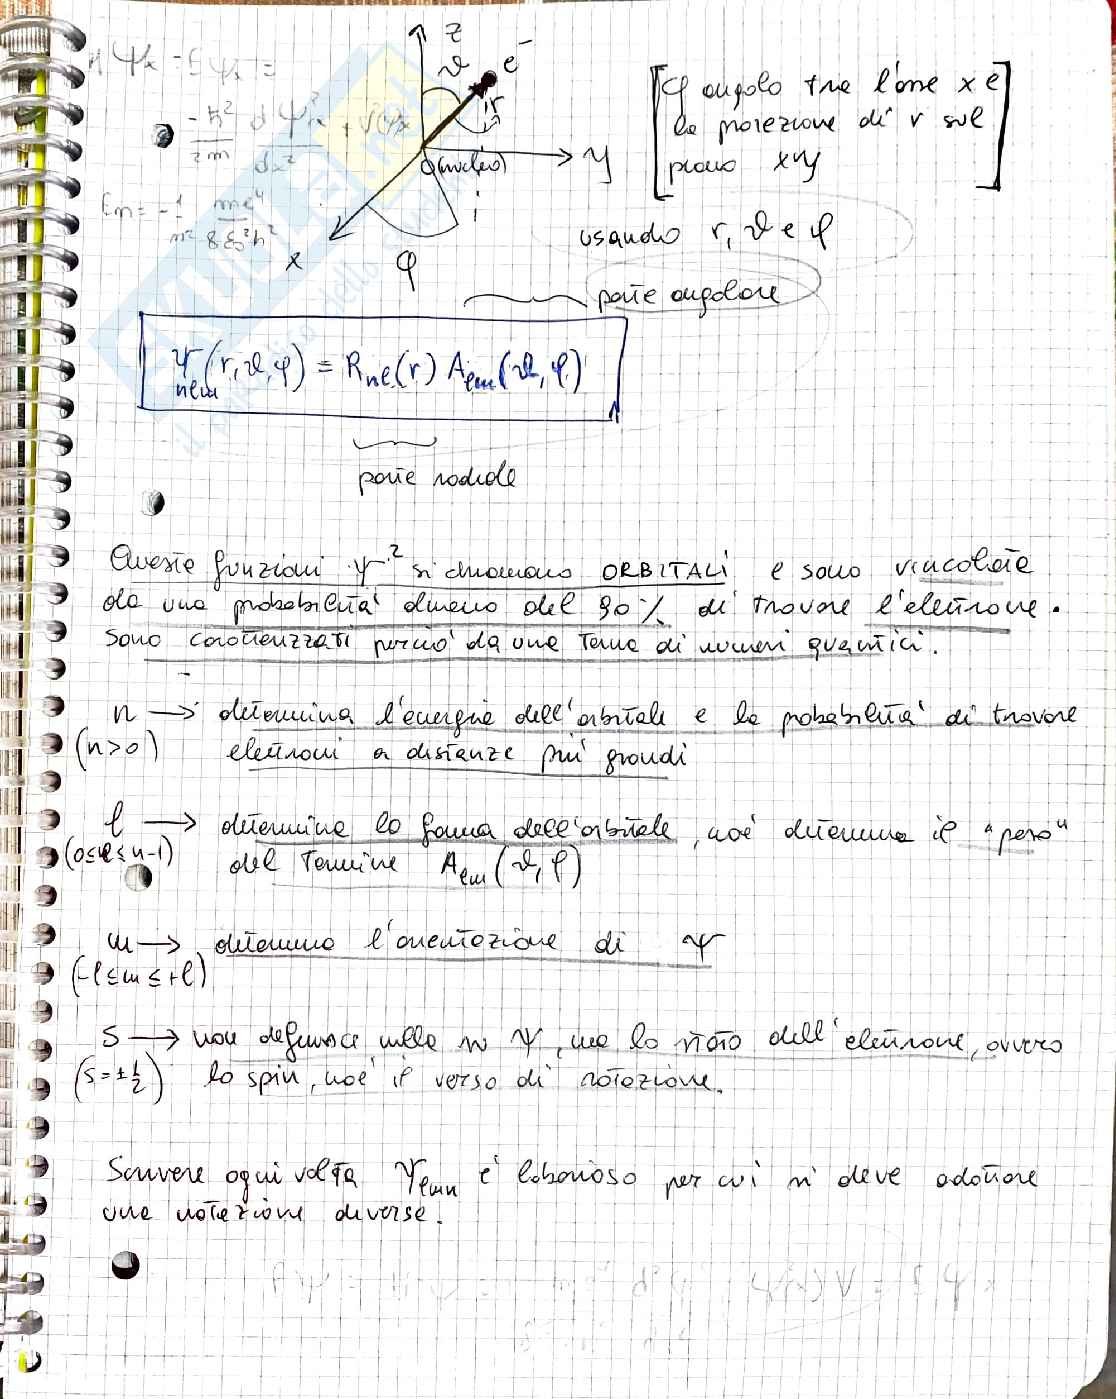 Hψx = Eψx =
-ħ²/2m d²ψx/dx² + V(x)ψx
En = -1/n² me⁴/8ε₀²h²
z
ϑ
e⁻
r
O(nucleo)
y
x
φ
[φ angolo tra l'asse x e
la proiezione di r sul
piano xy]
usando r, ϑ e φ
parte angolare
ψnlm(r,ϑ,φ) = Rnl(r) Alm(ϑ,φ)
parte radiale
Queste funzioni ψ² si chiamano ORBITALI e sono vincolate
da una probabilità almeno del 90% di trovare l'elettrone.
Sono caratterizzati perciò da una terna di numeri quantici.
n → determina l'energia dell'orbitale e la probabilità di trovare
(n>0) elettroni a distanze più grandi
l → determina la forma dell'orbitale, cioè determina il "peso"
(0≤l≤n-1) del termine Alm(ϑ,φ)
m → determina l'orientazione di ψ
(-l≤m≤+l)
s → non definisce nulla su ψ, ma lo stato dell'elettrone, ovvero
(s=±1/2) lo spin, cioè il verso di rotazione.
Scrivere ogni volta ψlmn è laborioso per cui si deve adottare
una notazione diversa.